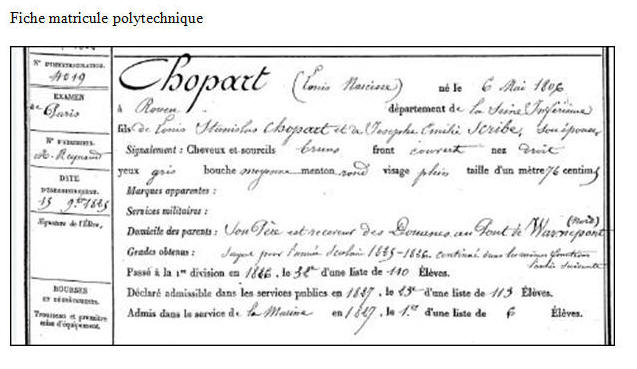 Fiche matricule polytechnique
N° D'IMMATRICULATION.
4019
EXAMEN
de Paris
N° D'EXAMEN
M. Reynaud
DATE
15 9bre 1825
Signature de l'Élève,
BOURSES
ET DÉGRÈVEMENTS.
Trousseau et première
mise d'équipement.
Chopart (Louis Narcisse) né le 6 Mai 1806
à Rouen département de la Seine Inférieure
fils de Louis Stanislas Chopart et de Josephe Emilie Scribe, son épouse
Signalement : Cheveux et sourcils bruns front couvert nez droit
yeux gris bouche moyenne menton rond visage plein taille d'un mètre 76 centim.
Marques apparentes :
Services militaires :
Domicile des parents : Son Père est receveur des Douanes au Pont de Warneton (Nord)
Grades obtenus : Sergent pour l'année scolaire 1825-1826. continué dans les mêmes fonctions
l'année suivante
Passé à la 1re division en 1826, le 32e d'une liste de 110 Élèves.
Déclaré admissible dans les services publics en 1827, le 23e d'une liste de 113 Élèves.
Admis dans le service de la Marine en 1827, le 1er d'une liste de 6 Élèves.